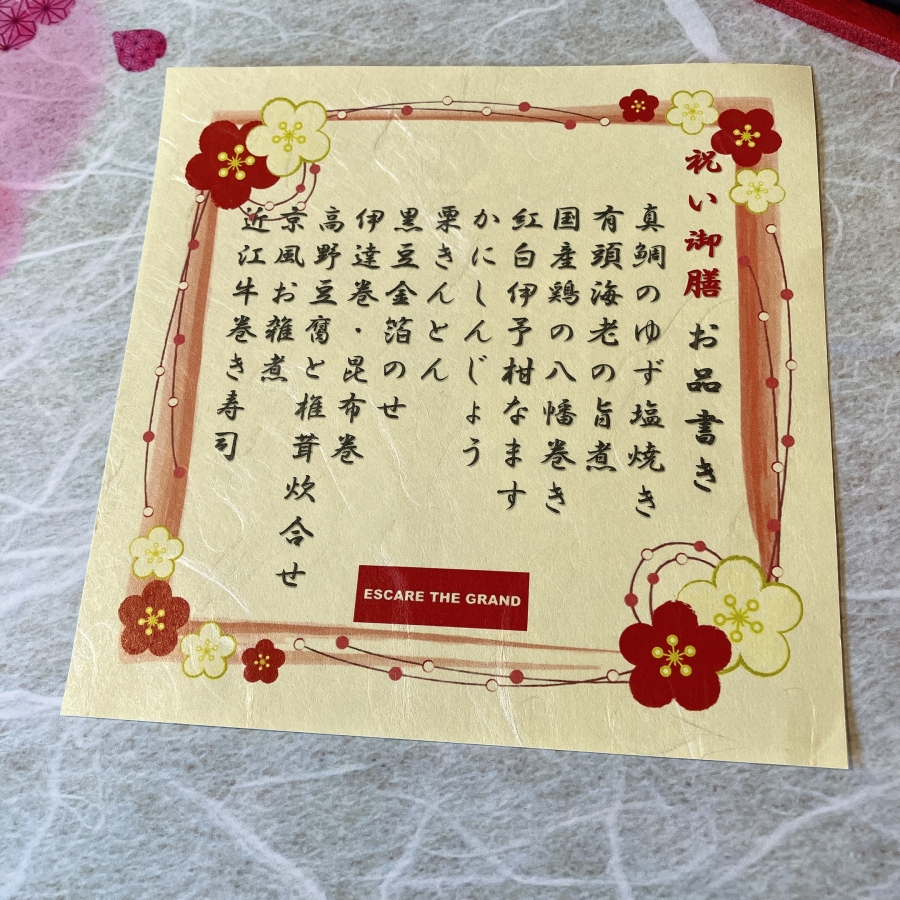 祝い御膳 お品書き
真鯛のゆず塩焼き
有頭海老の旨煮
国産鶏の八幡巻き
紅白伊予柑なます
かにしんじょう
栗きんとん
黒豆金箔のせ
伊達巻・昆布巻
高野豆腐と椎茸炊合せ
京風お雑煮
近江牛巻き寿司
ESCARE THE GRAND